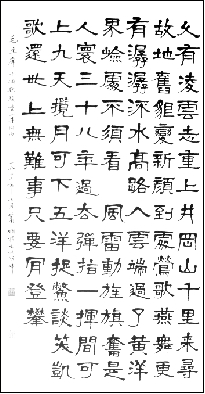 久有凌雲志重上井岡山千里來尋
故地舊貌變新顏到處鶯歌燕舞更
有潺潺流水高路入雲端過了黃洋
界險處不須看 風雷動旌旗奮是
人寰三十八年過去彈指一揮間可
上九天攬月可下五洋捉鱉談笑凱
歌還世上無難事只要肯登攀